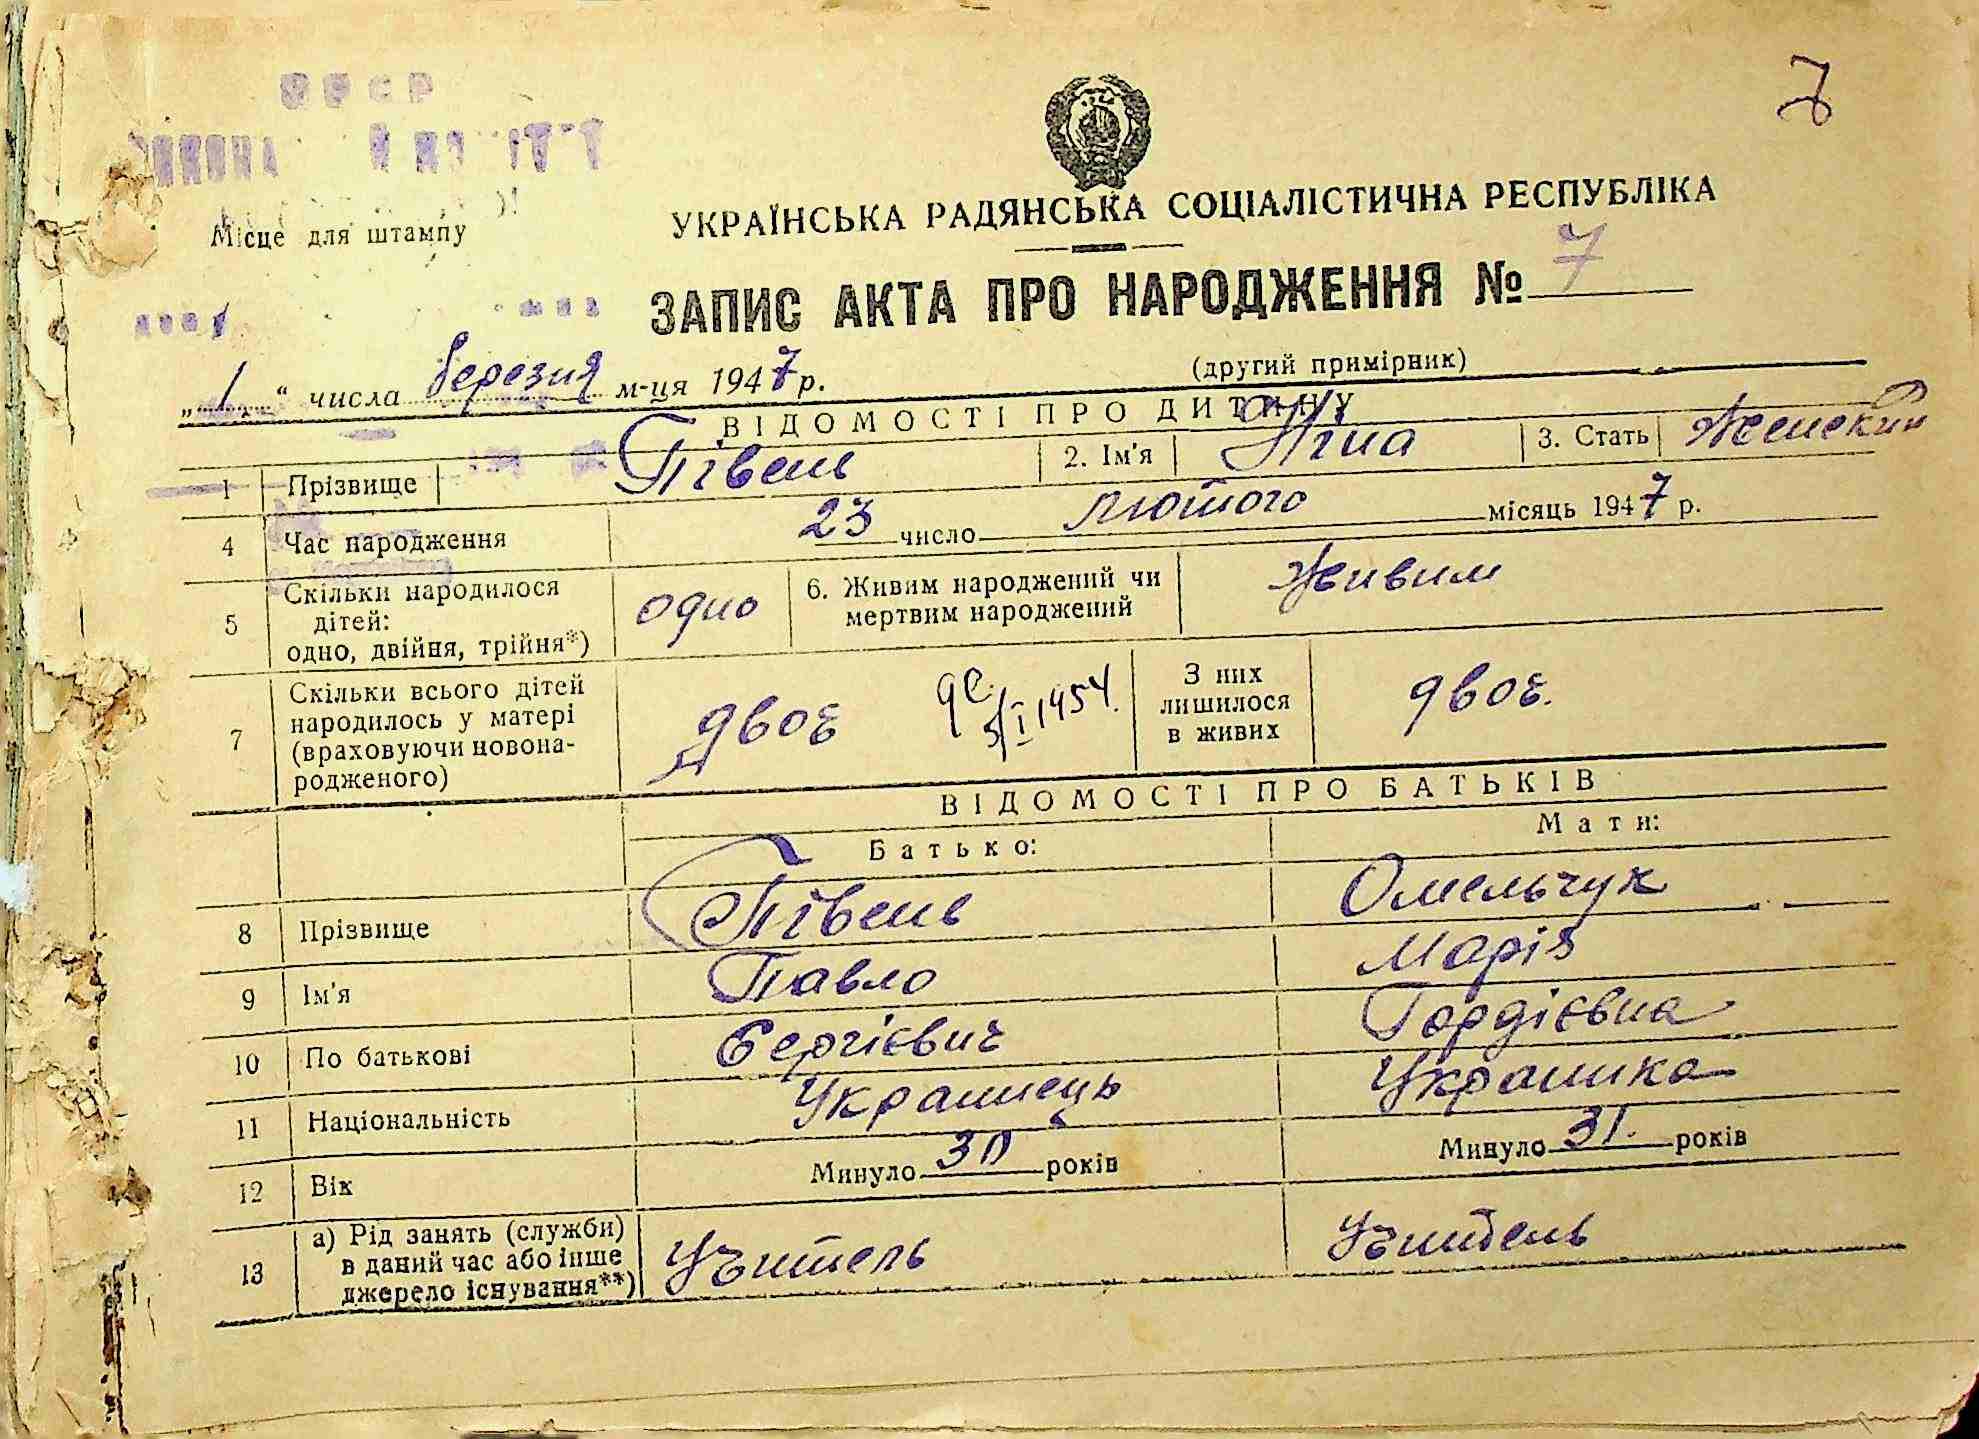 УРСР
7
Місце для штампу
УКРАЇНСЬКА РАДЯНСЬКА СОЦІАЛІСТИЧНА РЕСПУБЛІКА
ЗАПИС АКТА ПРО НАРОДЖЕННЯ № 7
„1“ числа березня м-ця 1947 р.
(другий примірник)
ВІДОМОСТІ ПРО ДИТИНУ
1 Прізвище Півень 2. Ім'я Ніна 3. Стать Женский
4 Час народження 23 число лютого місяць 1947 р.
5 Скільки народилося дітей: одно, двійня, трійня*) одно 6. Живим народжений чи мертвим народжений Живим
7 Скільки всього дітей народилось у матері (враховуючи новонародженого) двоє 5/I 1954. З них лишилося в живих двоє.
ВІДОМОСТІ ПРО БАТЬКІВ
Батько: Мати:
8 Прізвище Півень Омельчук
9 Ім'я Павло Марія
10 По батькові Сергієвич Гордієвна
11 Національність Украинець Украинка
12 Вік Минуло 30 років Минуло 31. років
13 а) Рід занять (служби) в даний час або інше джерело існування**) Учитель Учитель